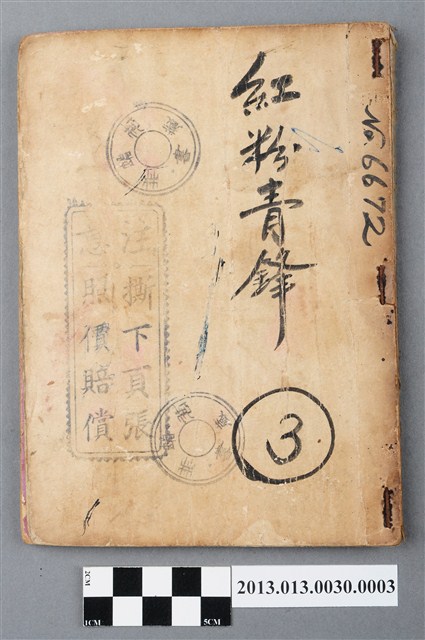 紅粉青鋒
No 6672
3
注撕下頁張
意照價賠償
2CM
1CM
5CM
2013.013.0030.0003